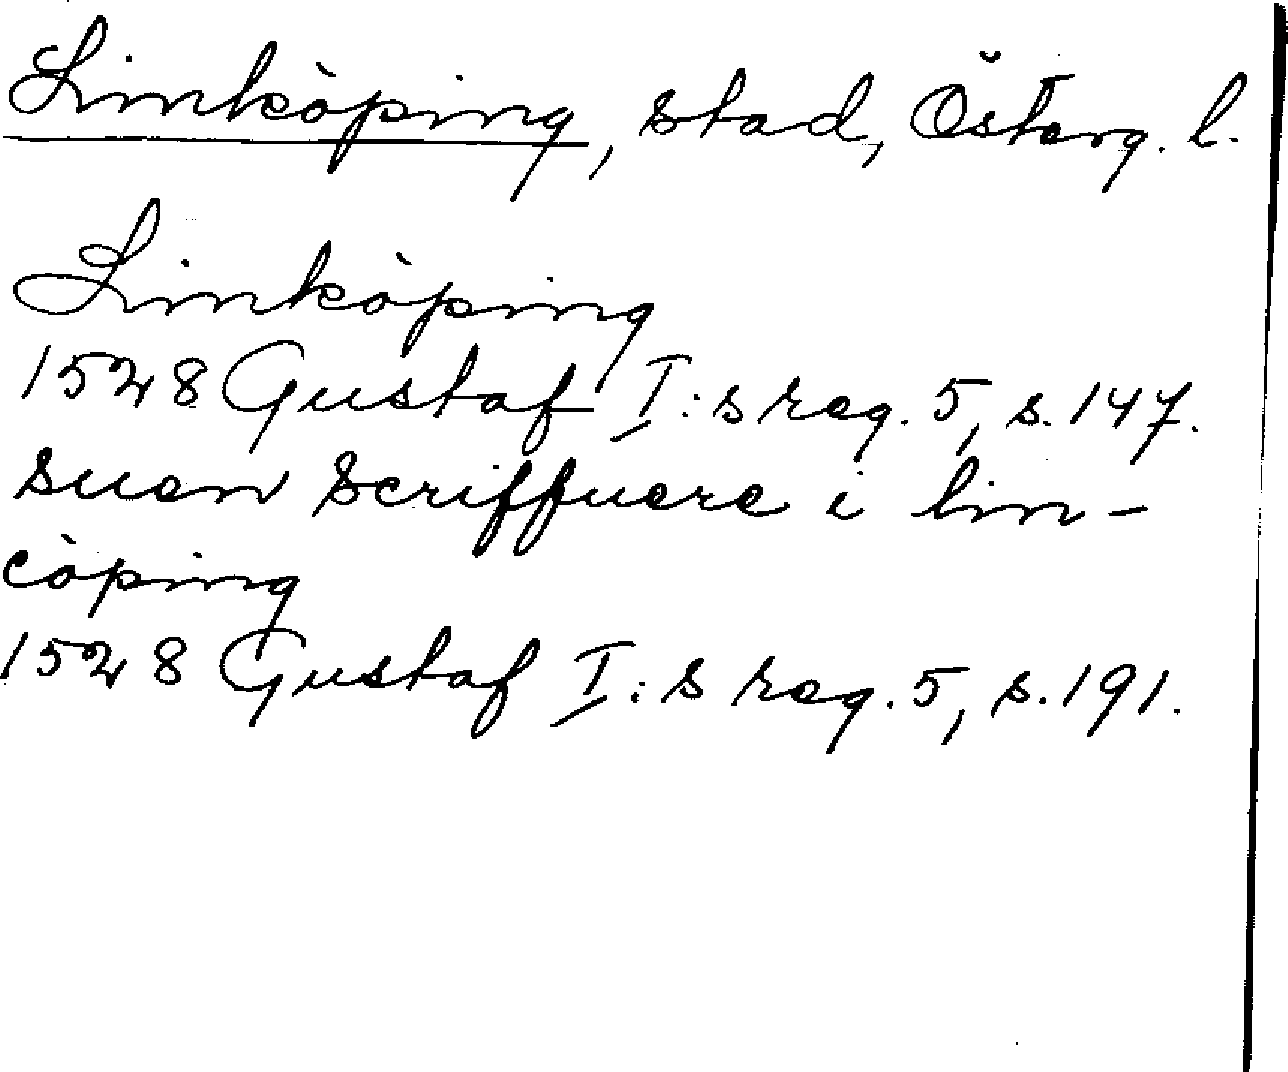 Linköping, stad, Österg. l.
Linköping
1528 Gustaf I:s reg. 5, s. 147.
suen scriffuere i lin-
cöping
1528 Gustaf I:s reg. 5, s. 191.